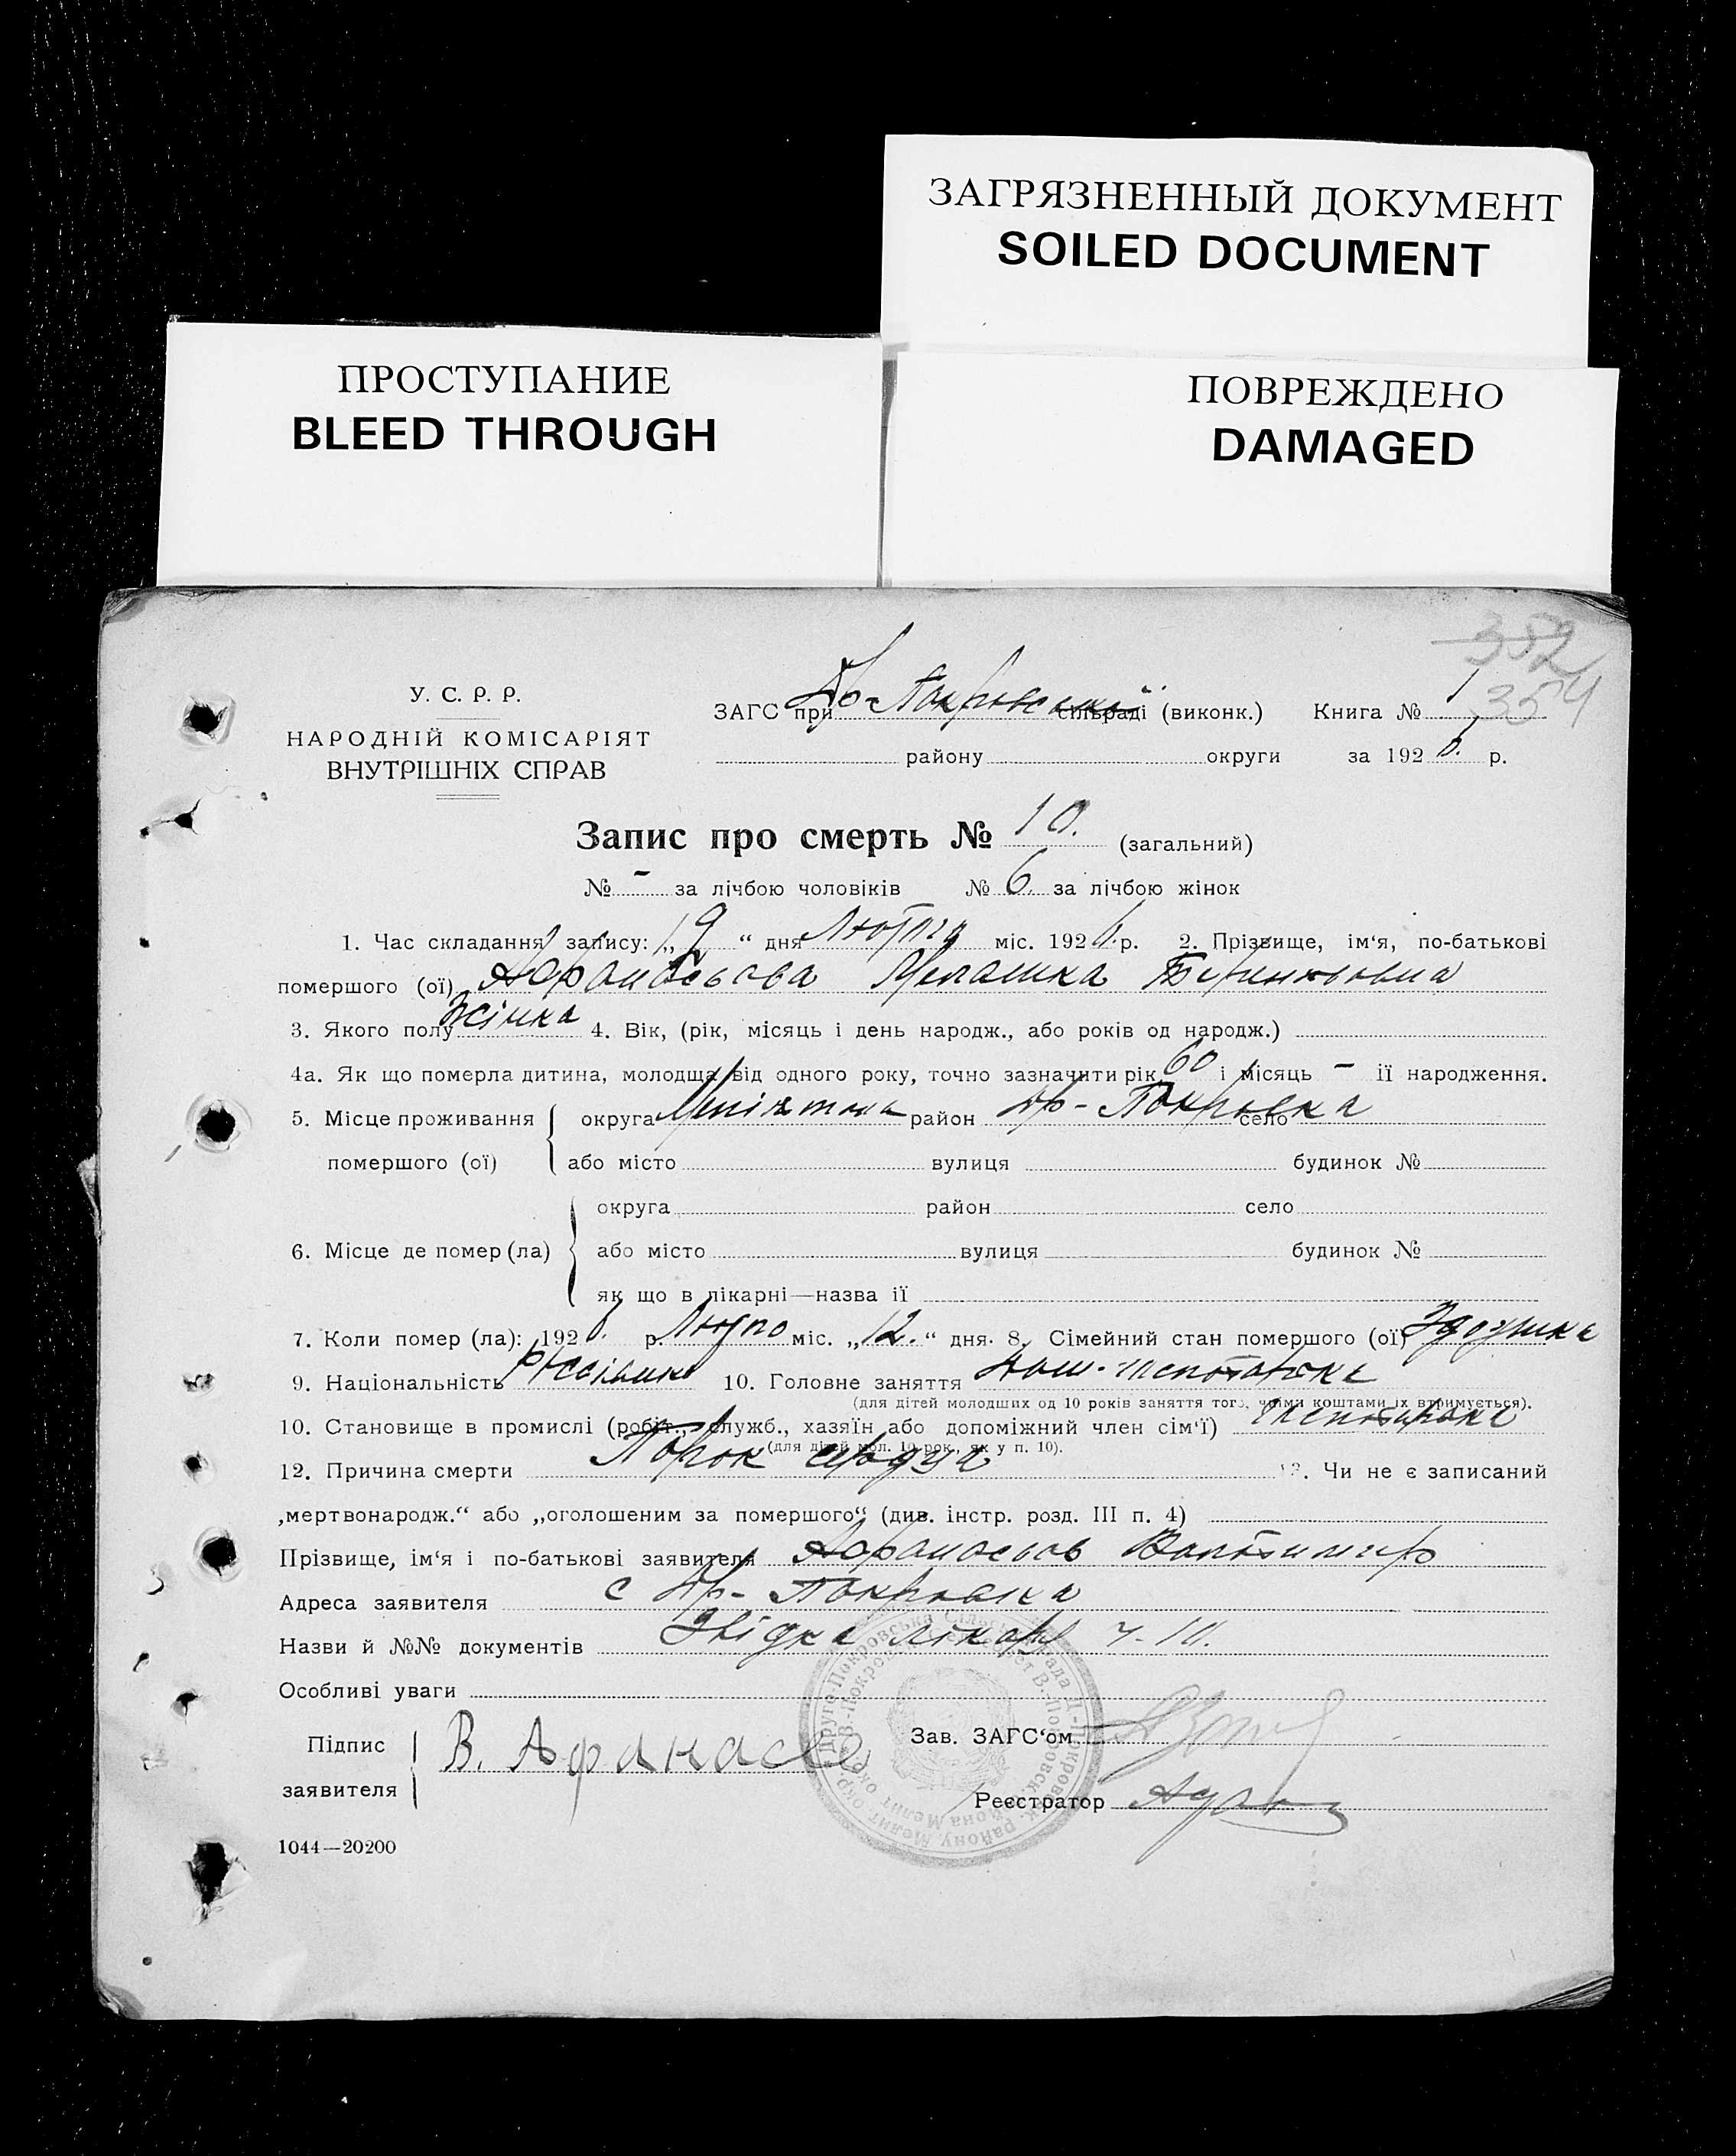 ЗАГРЯЗНЕННЫЙ ДОКУМЕНТ
SOILED DOCUMENT
ПРОСТУПАНИЕ
BLEED THROUGH
ПОВРЕЖДЕНО
DAMAGED
352
354
У. С. Р. Р.
НАРОДНІЙ КОМІСАРІЯТ
ВНУТРІШНІХ СПРАВ
ЗАГС при Др-Покровській сільраді (виконк.) Книга № 1
району округи за 192 р.
Запис про смерть № 10. (загальний)
№ - за лічбою чоловіків № 6 за лічбою жінок
1. Час складання запису: „19“ дня Лютня міс. 192 р. 2. Прізвище, ім‘я, по-батькові
помершого (ої) Афанасьєва Мелашка
3. Якого полу Жінка 4. Вік, (рік, місяць і день народж., або років од народж.)
4а. Як що померла дитина, молодща від одного року, точно зазначити рік 60 і місяць - її народження.
5. Місце проживання округа район Др-Покровка село
помершого (ої) або місто вулиця будинок №
округа район село
6. Місце де помер (ла) або місто вулиця будинок №
як що в лікарні—назва її
7. Коли помер (ла): 192 р. міс. „12.“ дня. 8. Сімейний стан помершого (ої)
9. Національність 10. Головне заняття
(для дітей молодших од 10 років заняття того, чиїми коштами їх втримується).
10. Становище в промислі (робіт., служб., хазяїн або допоміжний член сім‘ї)
(для дітей мол. 10 рок., як у п. 10).
12. Причина смерти Порок сердца 13. Чи не є записаний
„мертвонародж.“ або „оголошеним за помершого“ (див. інстр. розд. III п. 4)
Прізвище, ім‘я і по-батькові заявителя Афанасьєв
Адреса заявителя с Др-Покровка
Назви й №№ документів лікаря ч. 10.
Особливі уваги
Підпис
заявителя
В. Афанасьев
Зав. ЗАГС‘ом
Реєстратор
1044—20200